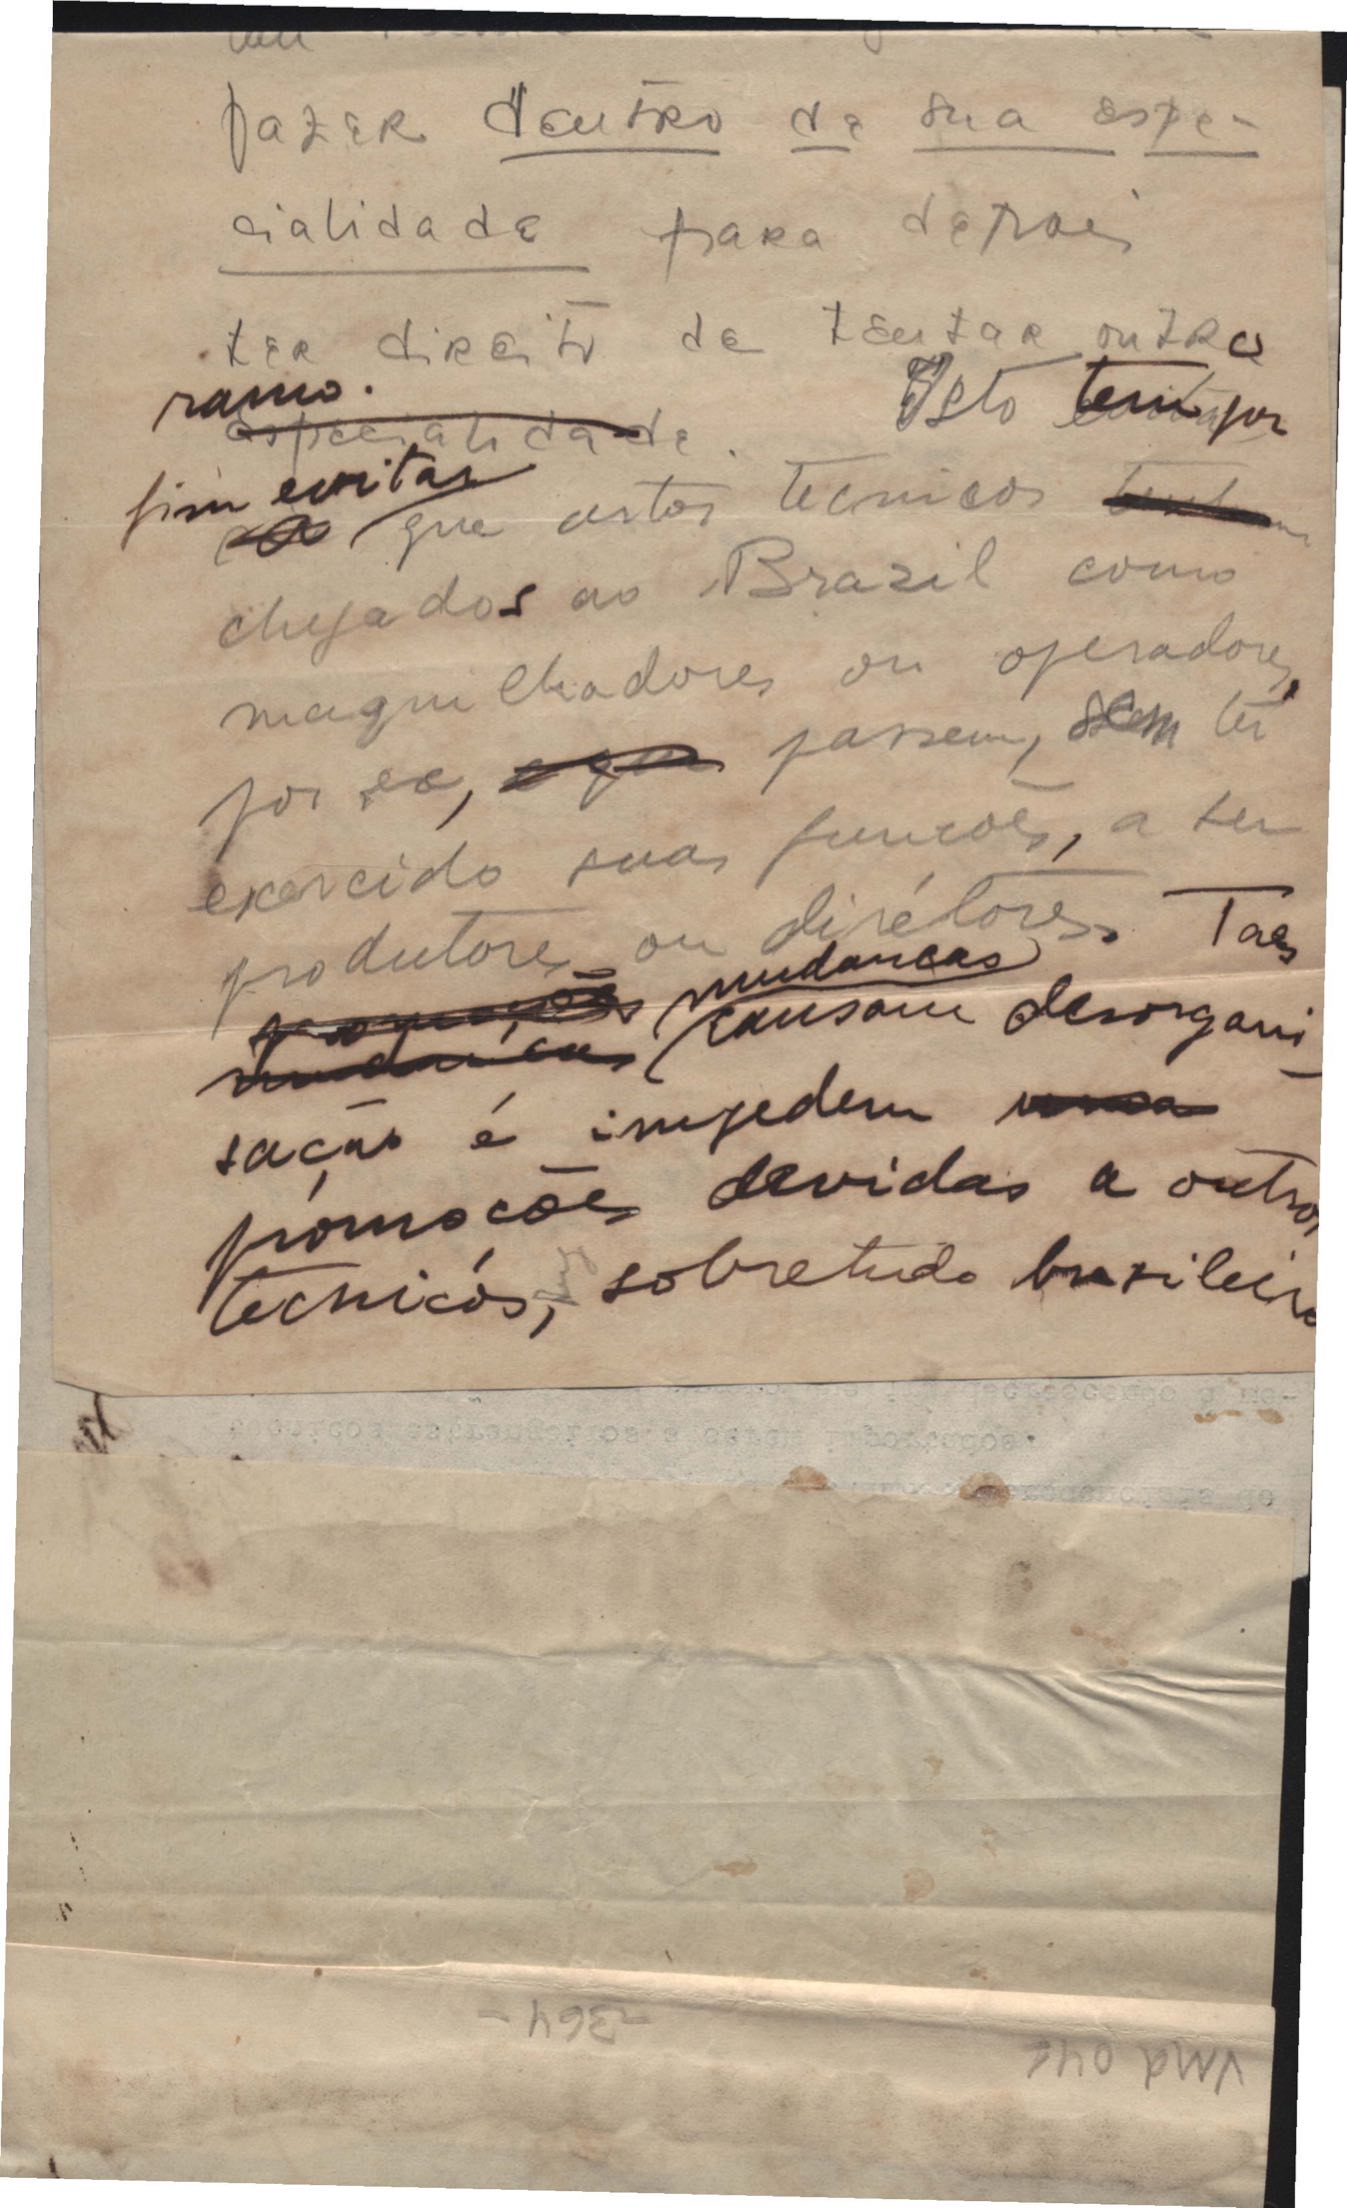 fazer dentro de sua espe-
cialidade para depois
ter direito de tentar outro
ramo. Isto tem por
especialidade.
fim evitar
que certos tecnicos
chegados ao Brazil como
maquilhadores ou operadores,
por ex, passem, sem ter
exercido suas funcões, a ser
produtores ou dirétores. Taes
mudancas
causam desorgani
sação é impedem
promocões devidas a outros
tecnicós, sobretudo brasileiro
-364-
VMd 041